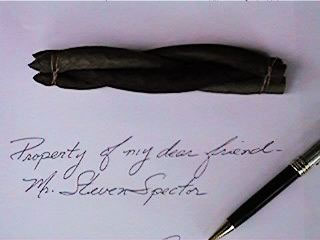 Property of my dear friend-
Mr. Steven Spector